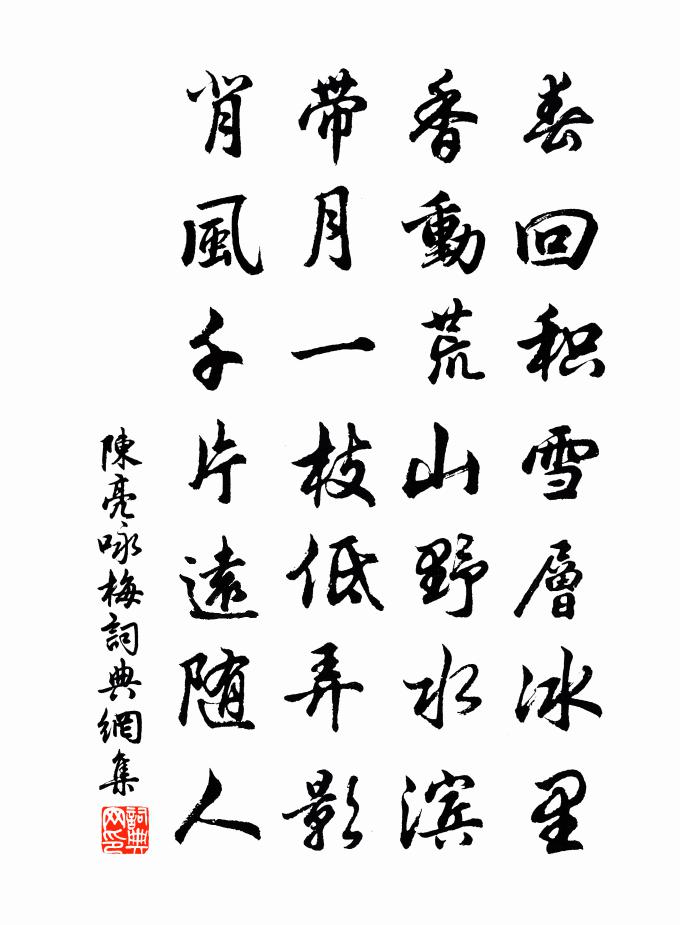 春回积雪層冰里
香動荒山野水滨
带月一枝低弄影
背風千片遠随人
陳亮咏梅詞典網集
詞典網印